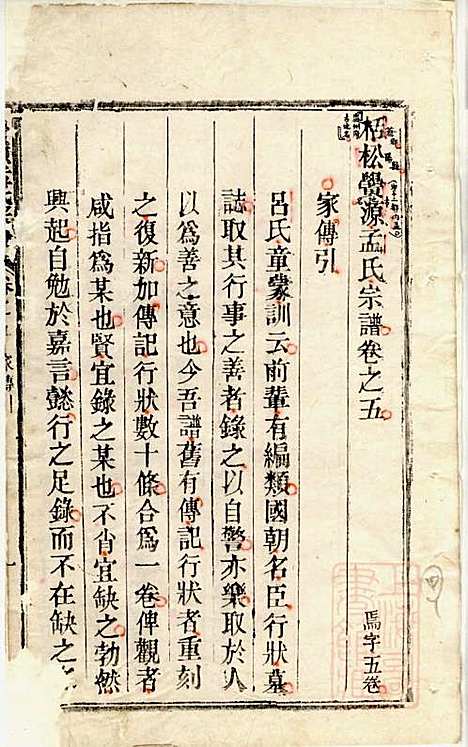 栢松學源孟氏宗譜卷之五
焉字五卷
家傳引
呂氏童蒙訓云前輩有編類國朝名臣行狀墓
誌取其行事之善者錄之以自警亦樂取於人
以爲善之意也今吾譜舊有傳記行狀者重刻
之復新加傳記行狀數十條合爲一卷俾觀者
咸指爲某也賢宜錄之某也不肖宜缺之勃然
興起自勉於嘉言懿行之足錄而不在缺之